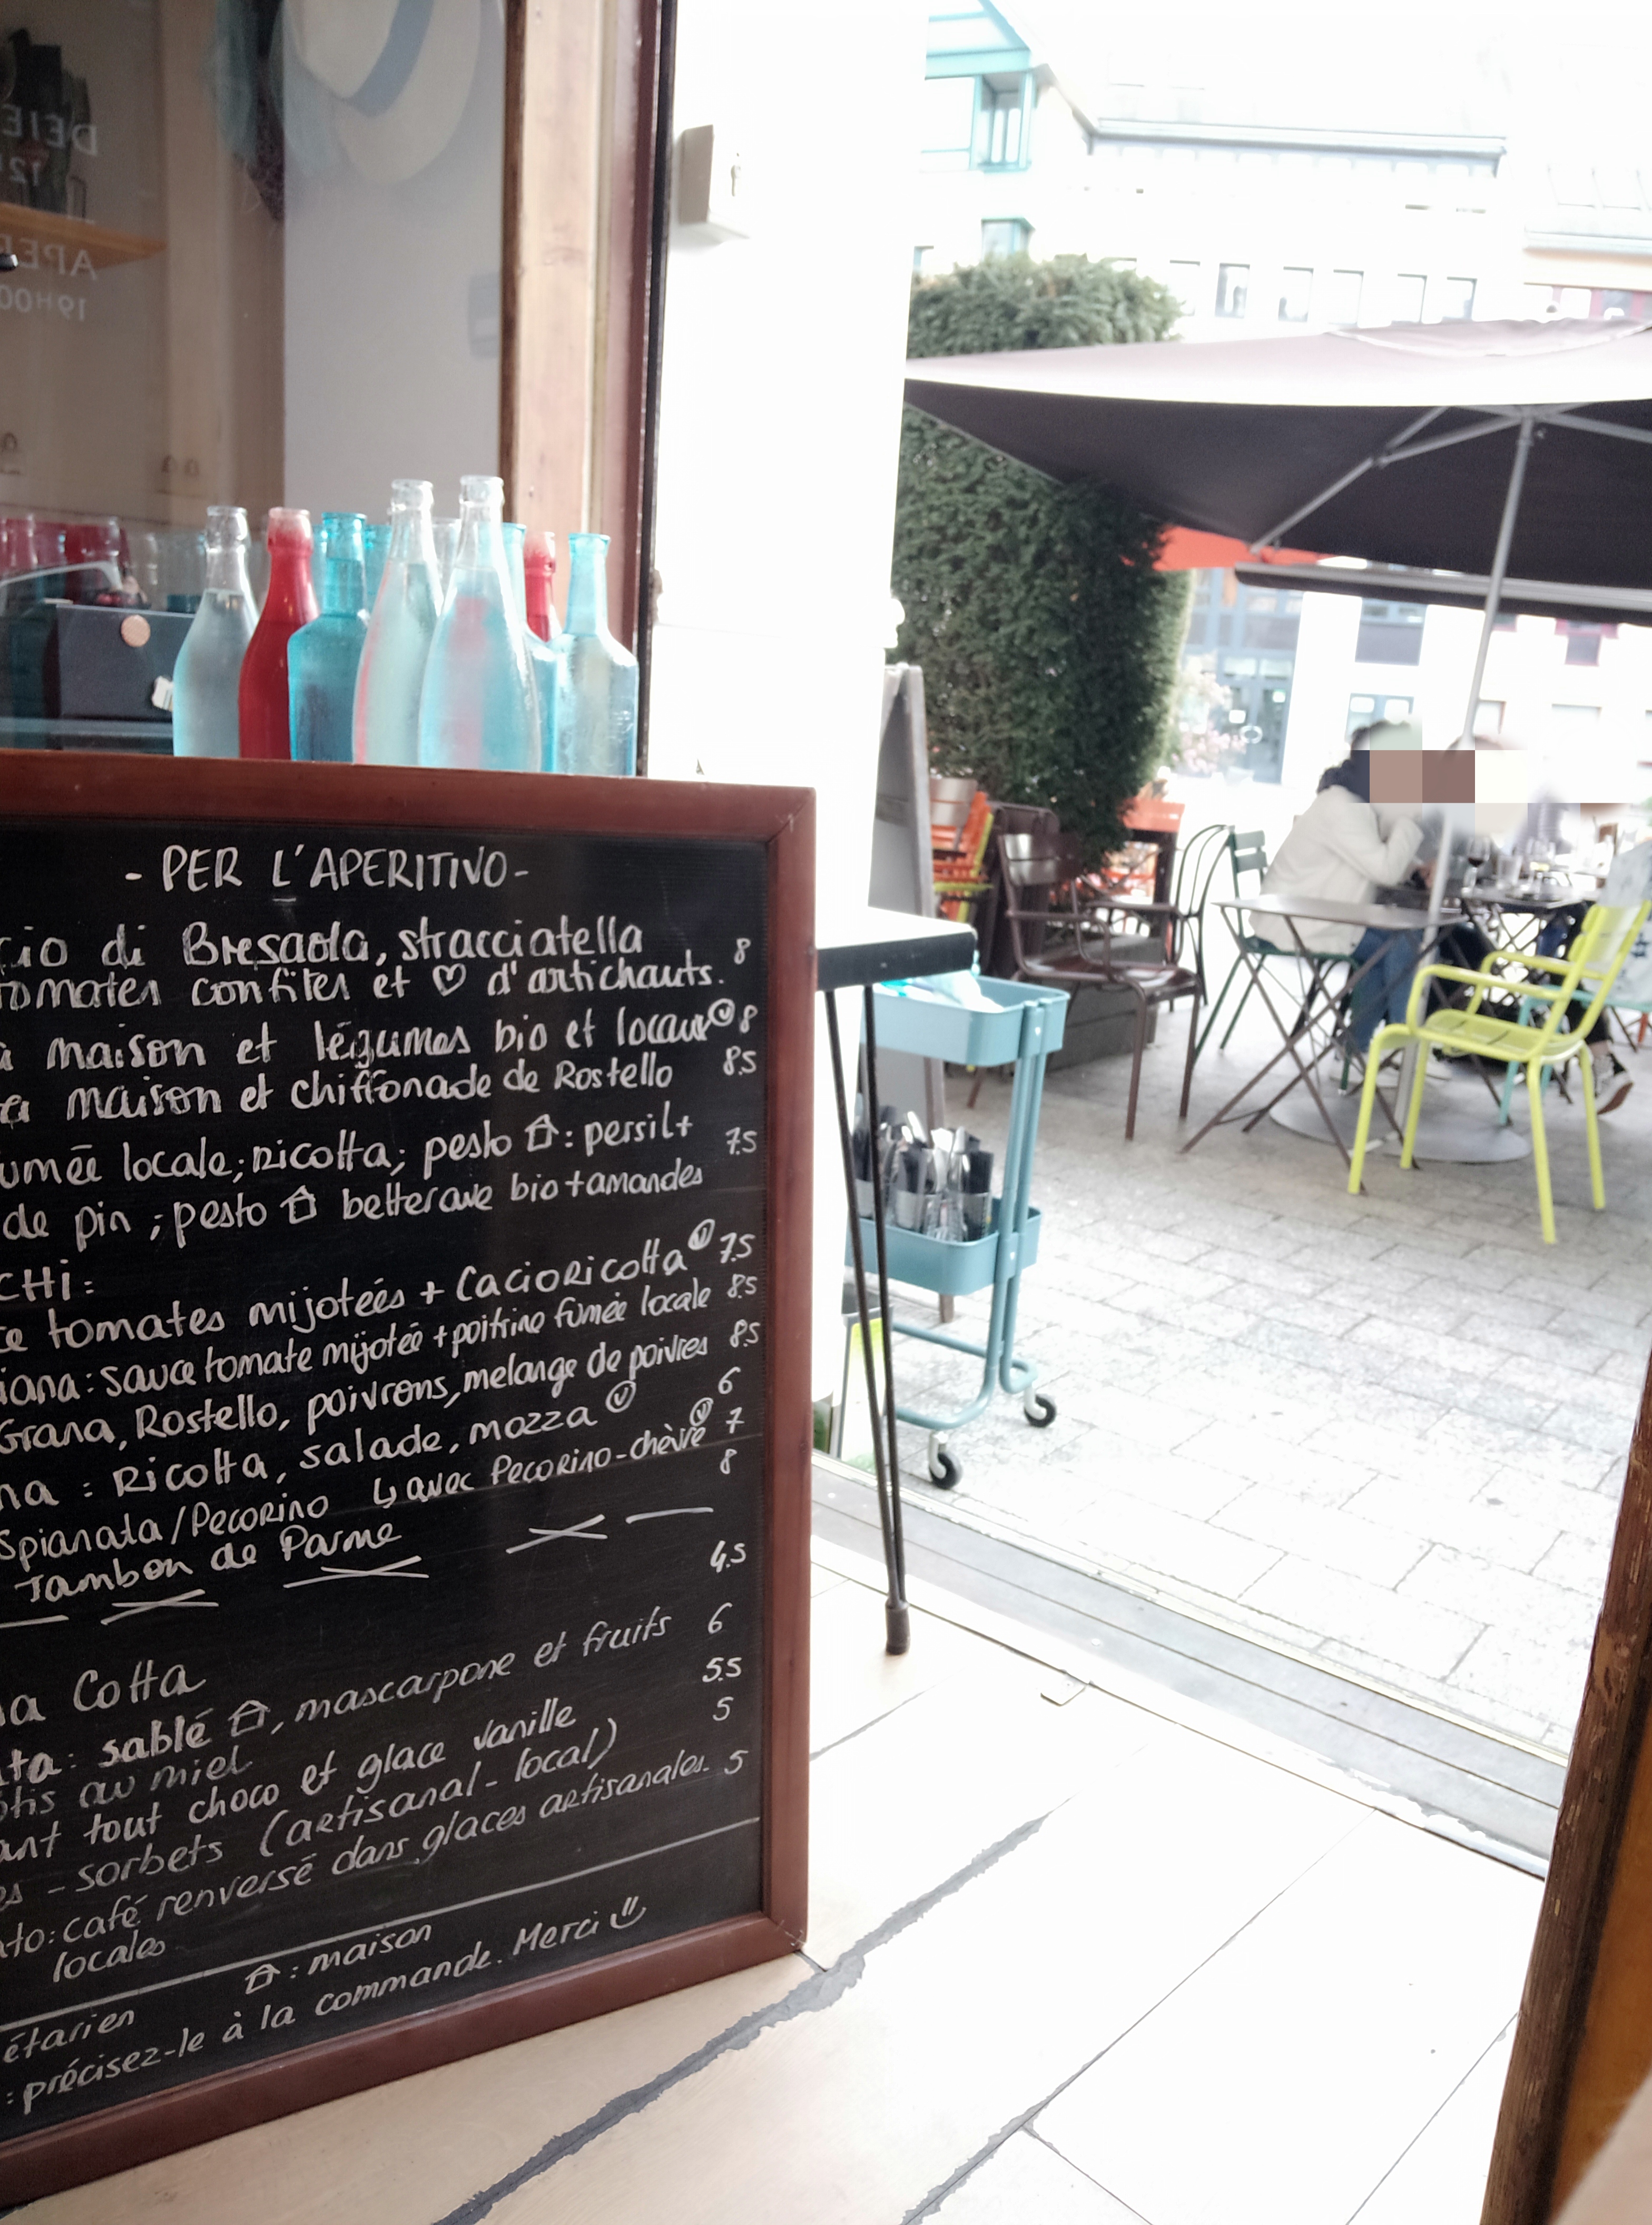 DEJE
12
APE
19H00
- PER L'APERITIVO -
cio di Bresaola, stracciatella 8
tomates confites et ♡ d'artichauts.
a maison et légumes bio et locaux Ⓥ 8
a maison et chiffonade de Rostello 8.5
umée locale; ricotta; pesto ⌂: persil+ 7.5
de pin; pesto ⌂ betterave bio+amandes
CHI:
ce tomates mijotées + Cacioricotta Ⓥ 7.5
iana: sauce tomate mijotée + poitrine fumée locale 8.5
Grana, Rostello, poivrons, melange de poivres 8.5
na: Ricotta, salade, mozza Ⓥ 6
↳ avec Pecorino-chèvre Ⓥ 7
Spianata/Pecorino 8
Jambon de Parme
na Cotta 4.5
ta: sablé ⌂, mascarpone et fruits 6
ôtis au miel
ant tout choco et glace vanille 5.5
es - sorbets (artisanal - local) 5
ato: café renversé dans glaces artisanales 5
locales
étarien ⌂: maison
: précisez-le à la commande. Merci ☺